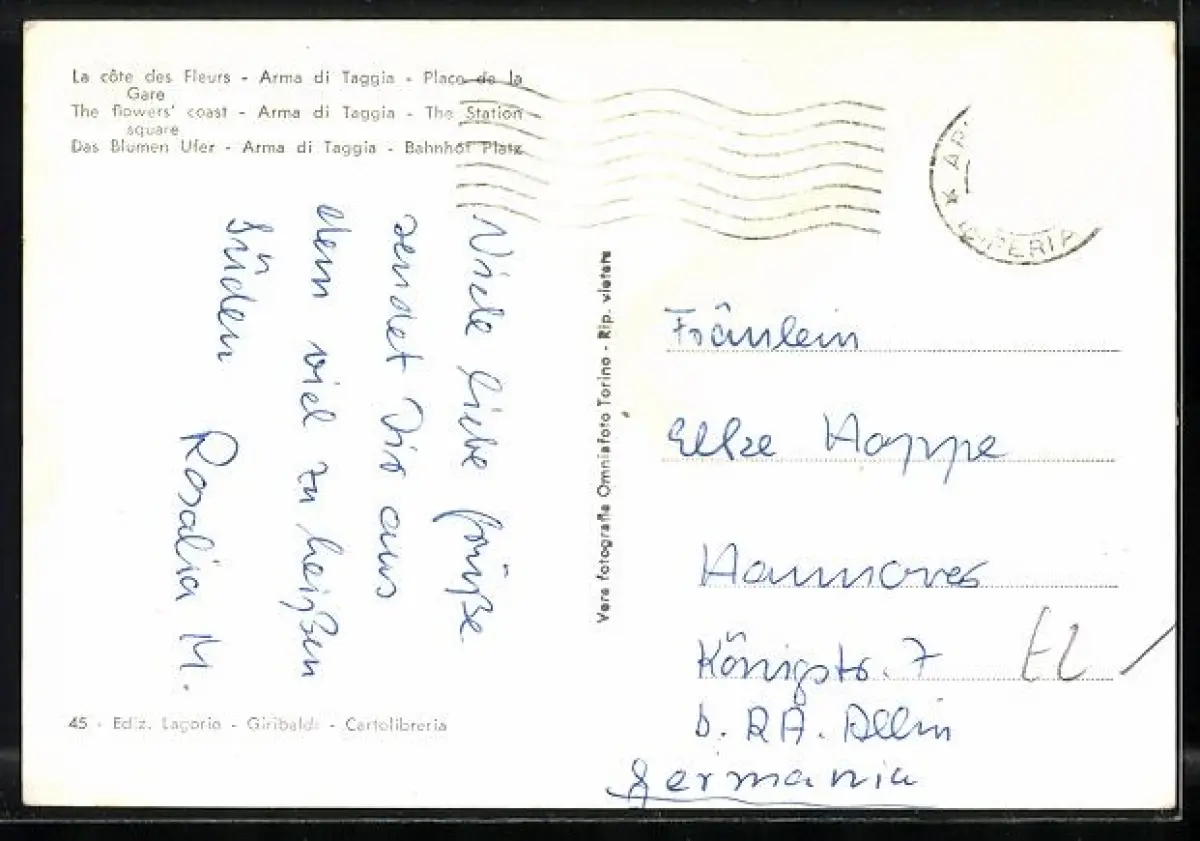 La côte des Fleurs - Arma di Taggia - Place de la
Gare
The flowers' coast - Arma di Taggia - The Station
square
Das Blumen Ufer - Arma di Taggia - Bahnhof Platz
Viele liebe Grüße
sendet Dir aus
dem viel zu heißen
Süden
Rosalia M.
45 - Ediz. Lagorio - Giribaldi - Cartolibreria
Vera fotografia Omniafoto Torino - Rip. vietata
* AR
IMPERIA
Fräulein
Elke Hoppe
Hannover
Königstr. 7
b. RA. Allin
Germania